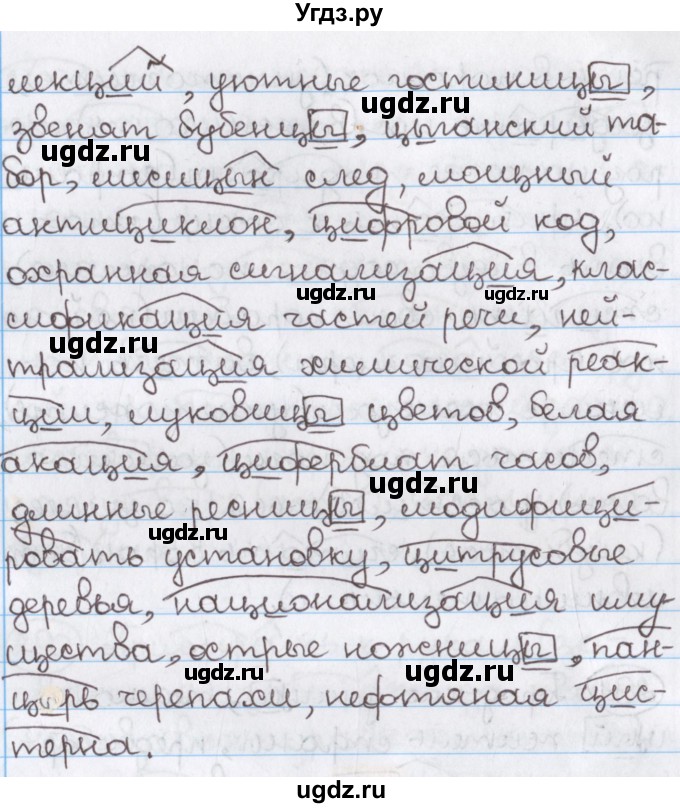 Угдз.ру
лекций, уютные гостиницы,
звенят бубенцы, цыганский та-
бор, лисицын след, мощный
антициклон, цифровой код,
охранная сигнализация, клас-
сификация частей речи, ней-
трализация химической реак-
ции, луковицы цветов, белая
акация, циферблат часов,
длинные ресницы, модифици-
ровать установку, цитрусовые
деревья, национализация иму
щества, острые ножницы, пан-
цырь черепахи, нефтяная цис-
терна.
ugdz.ru
ugdz.ru
ugdz.ru
ugdz.ru
ugdz.ru
ugdz.ru
ugdz.ru
ugdz.ru
ugdz.ru
ugdz.ru
ugdz.ru
ugdz.ru
ugdz.ru
ugdz.ru